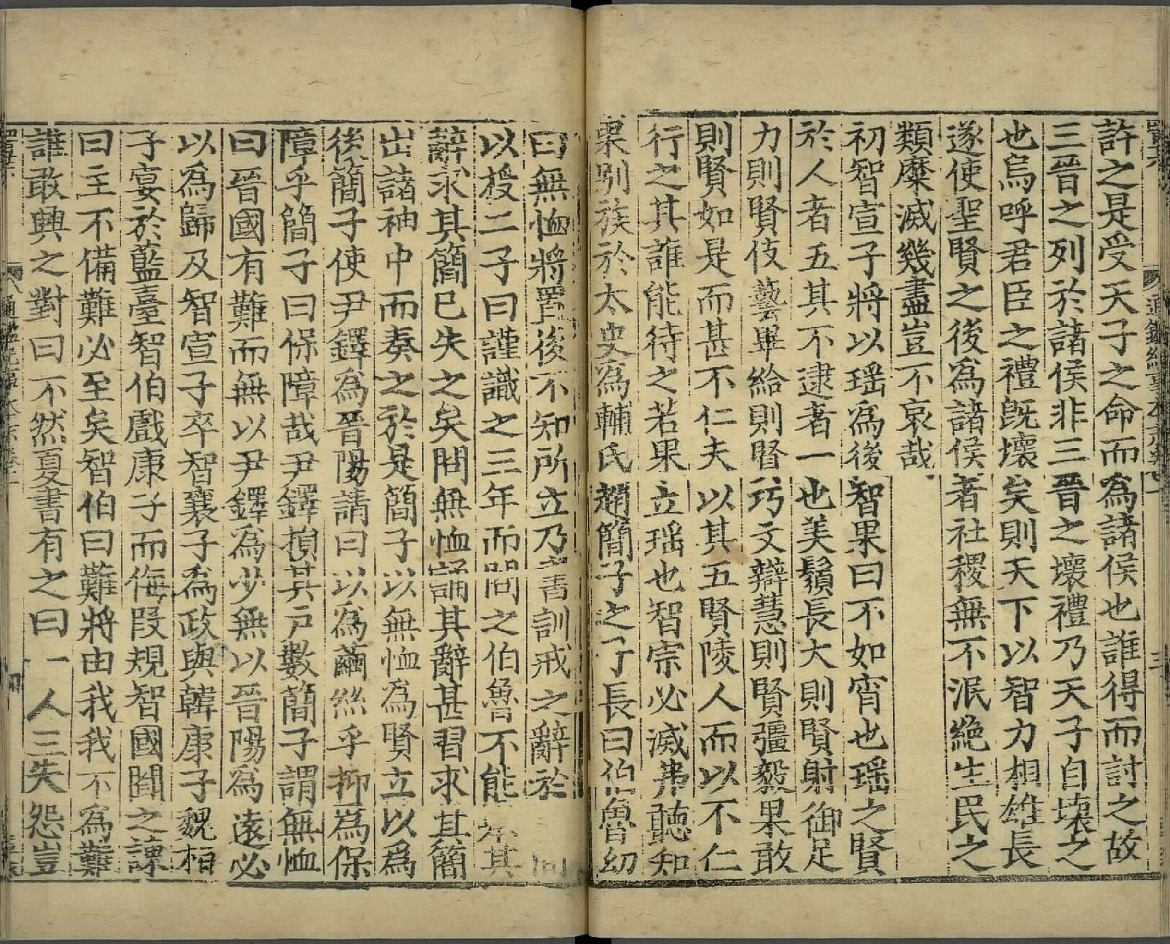 許之是受天子之命而為諸侯也誰得而討之故
三晉之列於諸侯非三晉之壞禮乃天子自壞之
也烏呼君臣之禮旣壞矣則天下以智力相雄長
遂使聖賢之後為諸侯者社稷無不泯絶生民之
類糜滅幾盡豈不哀哉
初智宣子將以瑶為後智果曰不如宵也瑶之賢
於人者五其不逮者一也美鬚長大則賢射御足
力則賢伎藝畢給則賢巧文辯慧則賢彊毅果敢
則賢如是而甚不仁夫以其五賢陵人而以不仁
行之其誰能待之若果立瑶也智宗必滅弗聽知
果別族於太史為輔氏趙簡子之子長曰伯魯幼
曰無恤將置後不知所立乃書訓戒之辭於
以授二子曰謹識之三年而問之伯魯不能
辭求其簡已失之矣問無恤誦其辭甚習求其簡
出諸袖中而奏之於是簡子以無恤為賢立以為
後簡子使尹鐸為晉陽請曰以為繭絲乎抑為保
障乎簡子曰保障哉尹鐸損其户數簡子謂無恤
曰晉國有難而無以尹鐸為少無以晉陽為遠必
以為歸及智宣子卒智襄子為政與韓康子魏桓
子宴於藍臺智伯戲康子而侮段規智國聞之諫
曰主不備難必至矣智伯曰難將由我我不為難
誰敢興之對曰不然夏書有之曰一人三失怨豈